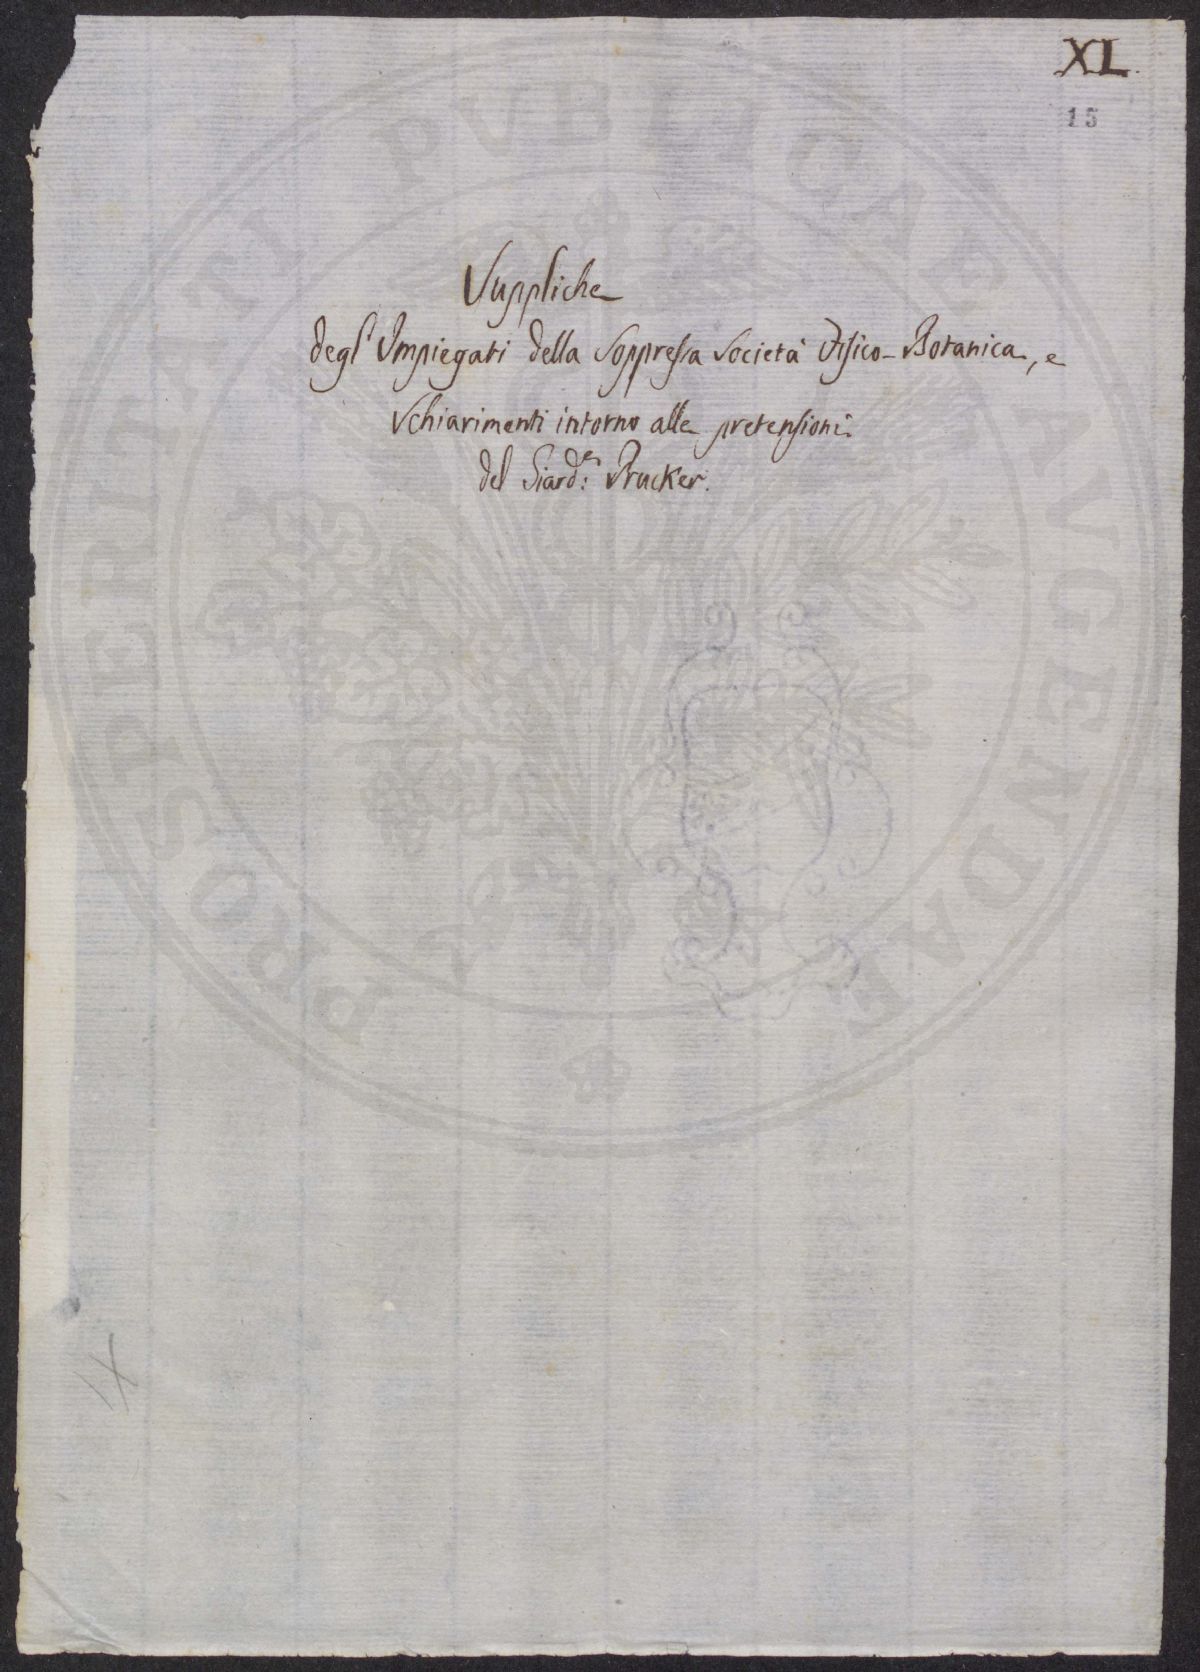 XL.
15
Suppliche
degl' Impiegati della Soppressa Società Fisico-Botanica, e
Schiarimenti intorno alle pretensioni
del Giard:e Prucker.
PROSPERITATI PVBLICAE AVGENDAE